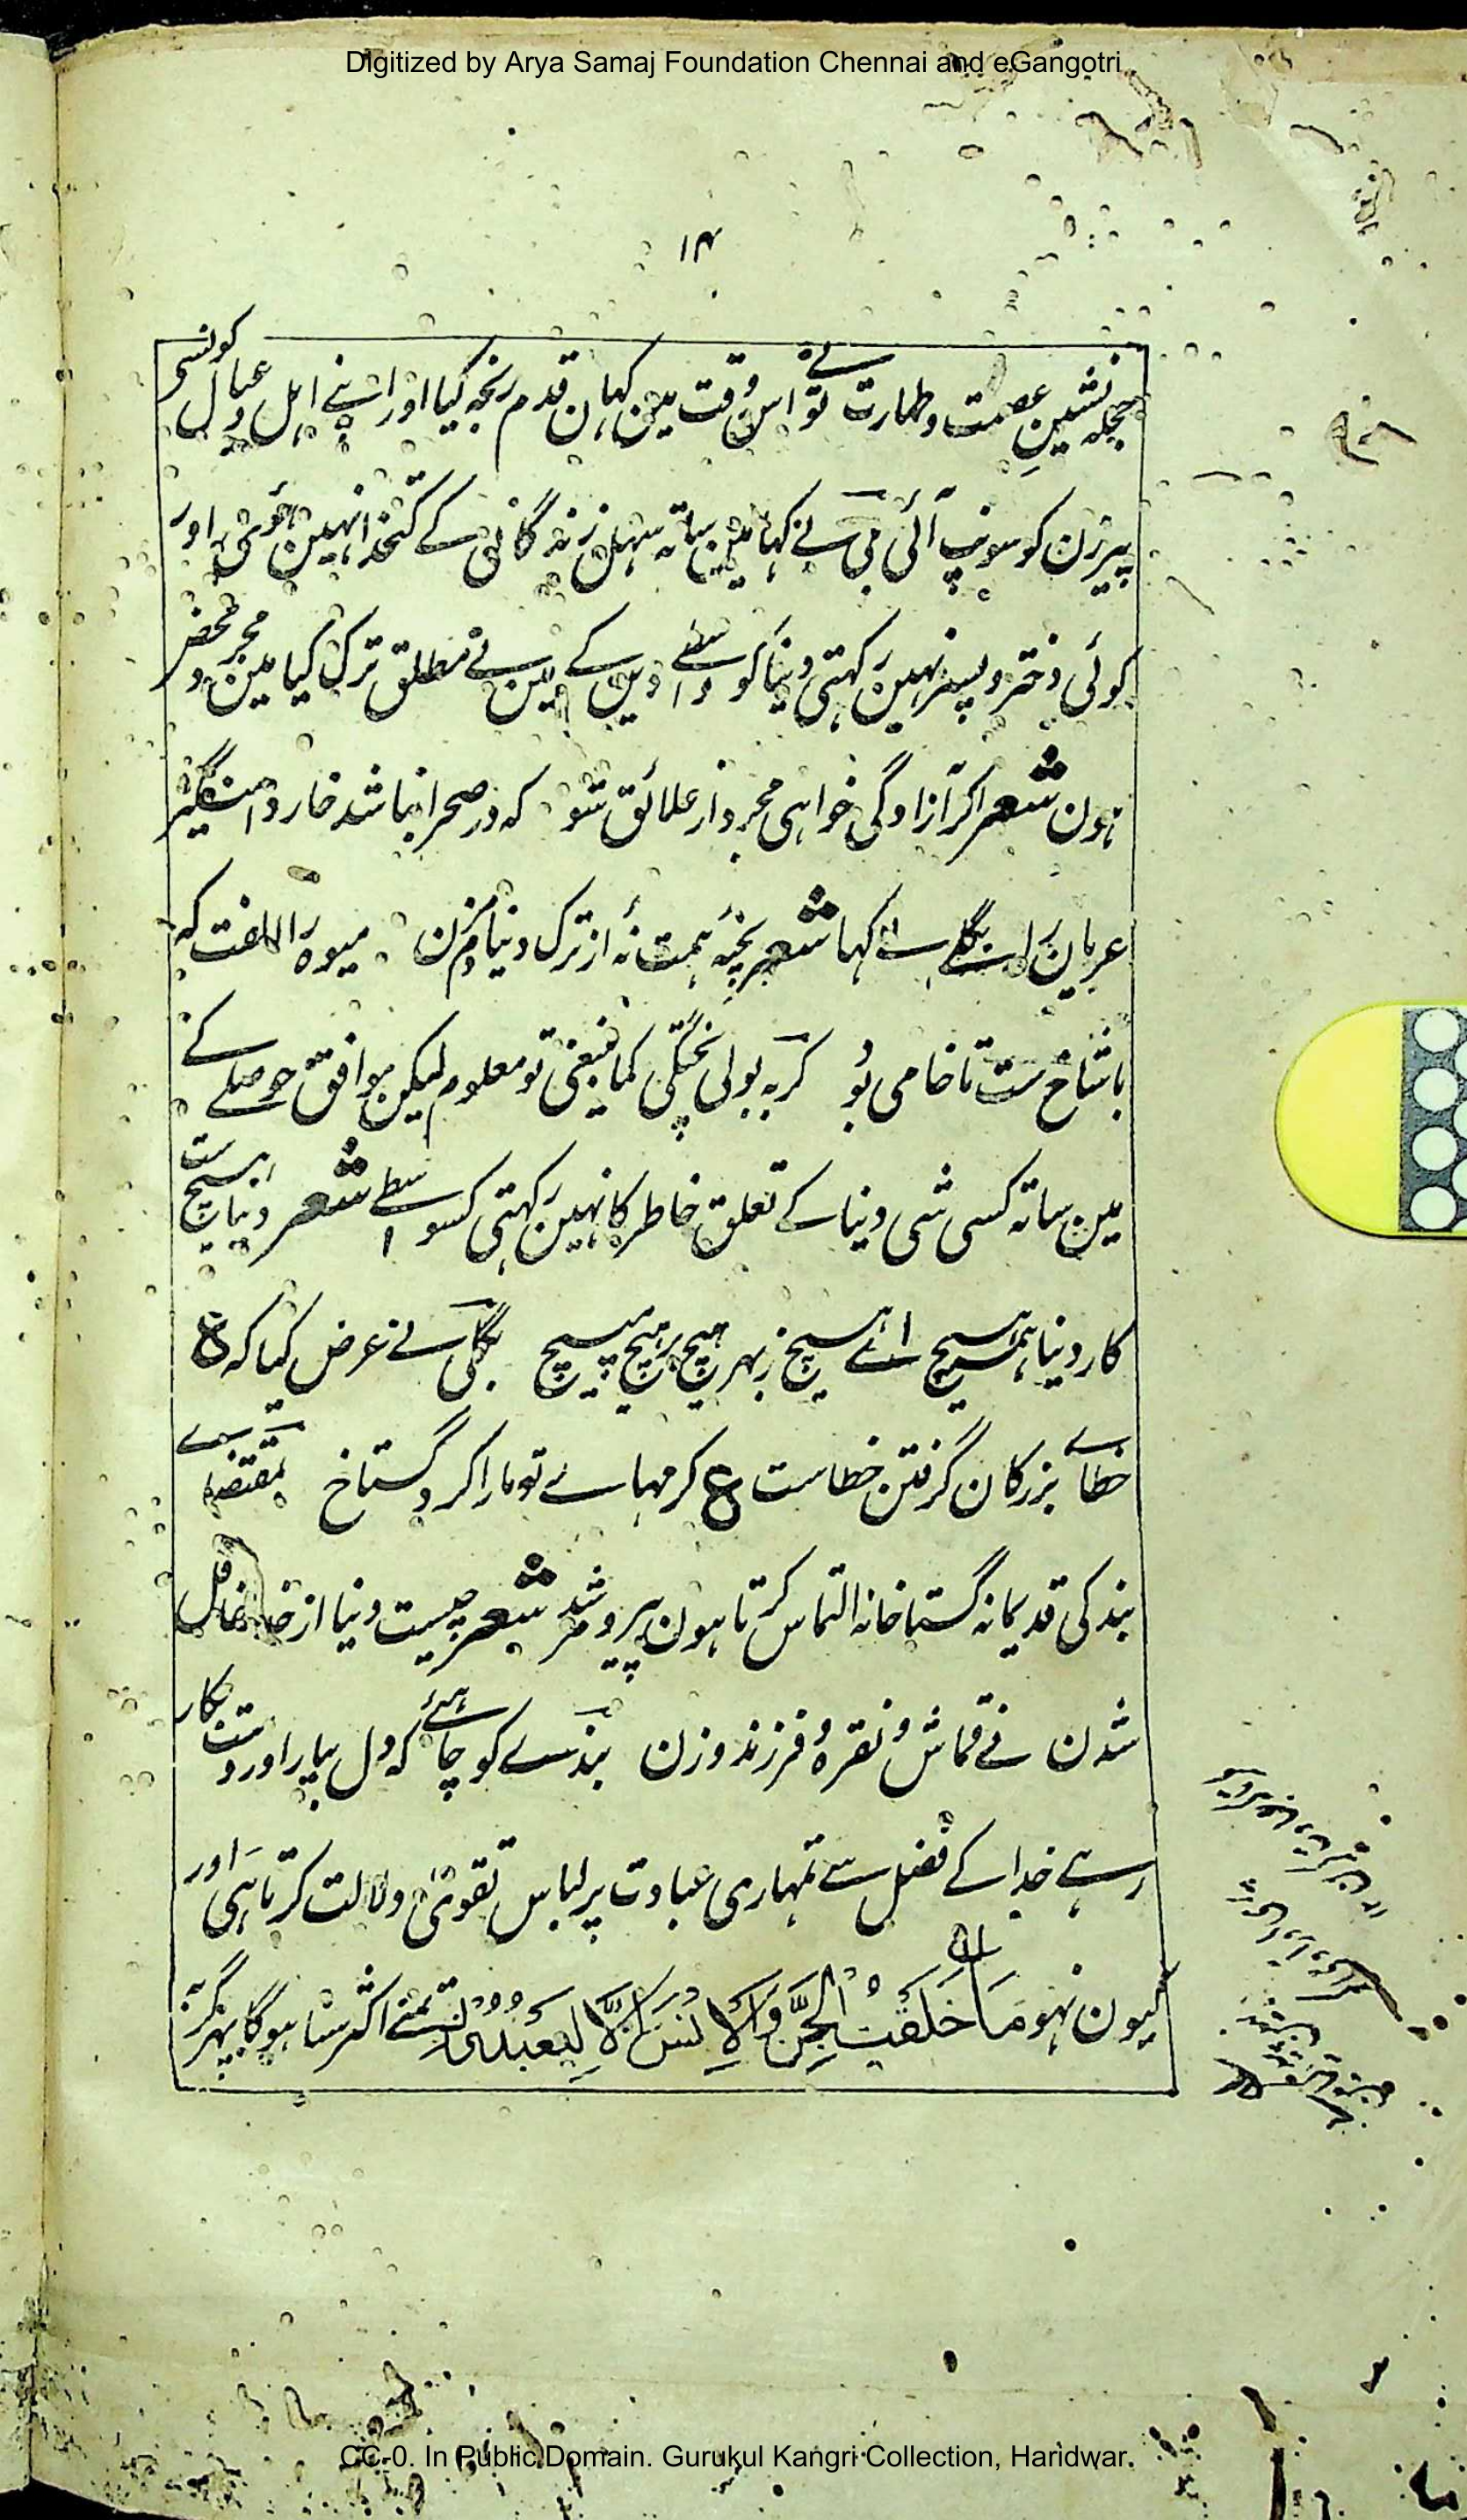 Digitized by Arya Samaj Foundation Chennai and eGangotri
۱۴
حجلہ نشین عصمت و طہارت نے تو اس وقت مین کہان قدم رنجہ کیا اور اپنے اہل و عیال کونسی
پیرزن کو سونپ آئی بی بی نے کہا مین ساتہ سہل زندگانی کے کتخدا نہین ہوئی اور
کوئی دختر و پسر نہین رکہتی دنیا کو واسطے دین کے مین نے مطلق ترک کیا مین مجرد محض
ہون شعر اگر آزادگی خواہی مجرد از علائق شو که در صحرا نباشد خار دامنگیر
عریان را بگلے نے کہا شعر پختہ ہمت نۂ از ترک دنیا دم مزن میوہ را الفت کہ
باشاخ ست تا خامی بود گربہ بولی پختگی کما ینبغی تو معلوم لیکن موافق حوصلے کے
مین ساتہ کسی شی دنیا کے تعلق خاطر کا نہین رکہتی کسواسطے شعر دنیا ہیچ ست
کار دنیا ہمہ ہیچ اے ہیچ ز بہر ہیچ بر ہیچ مپیچ بگلی نے عرض کیا کہ ع
خطاے بزرگان گرفتن خطاست ع کرمہاے تو مارا کرد گستاخ بمقتضاے
بندگی قدیمانہ گستاخانہ التماس کرتا ہون پیر و مرشد شعر چیست دنیا از خدا غافل
شدن نے قماش و نقرہ و فرزند و زن بندے کو چاہئے کہ دل بیار اور دست بکار
رہے خدا کے فضل سے تمہاری عبادت پر لباس تقوی دلالت کرتا ہی اور
کیون نہو مَا خَلَقْتُ الْجِنَّ وَالْاِنْسَ اِلَّا لِيَعْبُدُوْنِ تمنے اکثر سنا ہوگا پہر گربہ
CC-0. In Public Domain. Gurukul Kangri Collection, Haridwar.